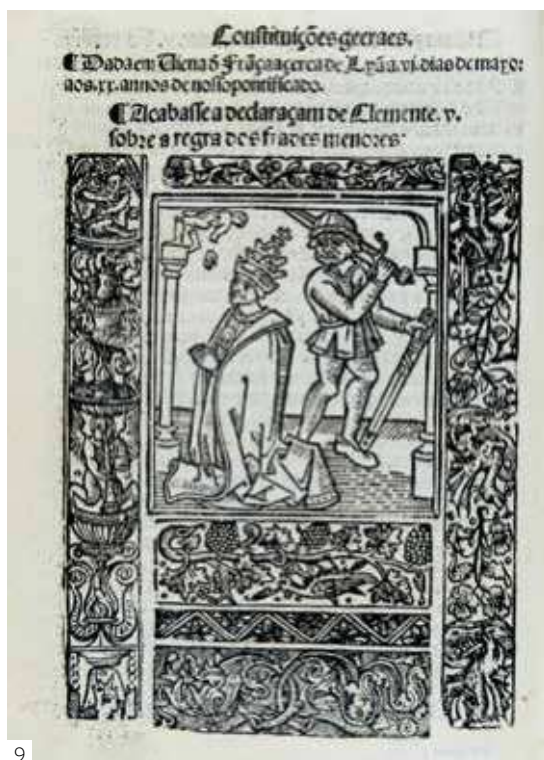 Constituições geeraes.
¶ Dada em Uiena d̃ Frãça açerca de Lyã a.vi.dias de mayo:
aos.xx.annos de nosso pontificado.
¶ Acabasse a declaraçam de Clemente.v.
sobre a regra dos frades menores·
9